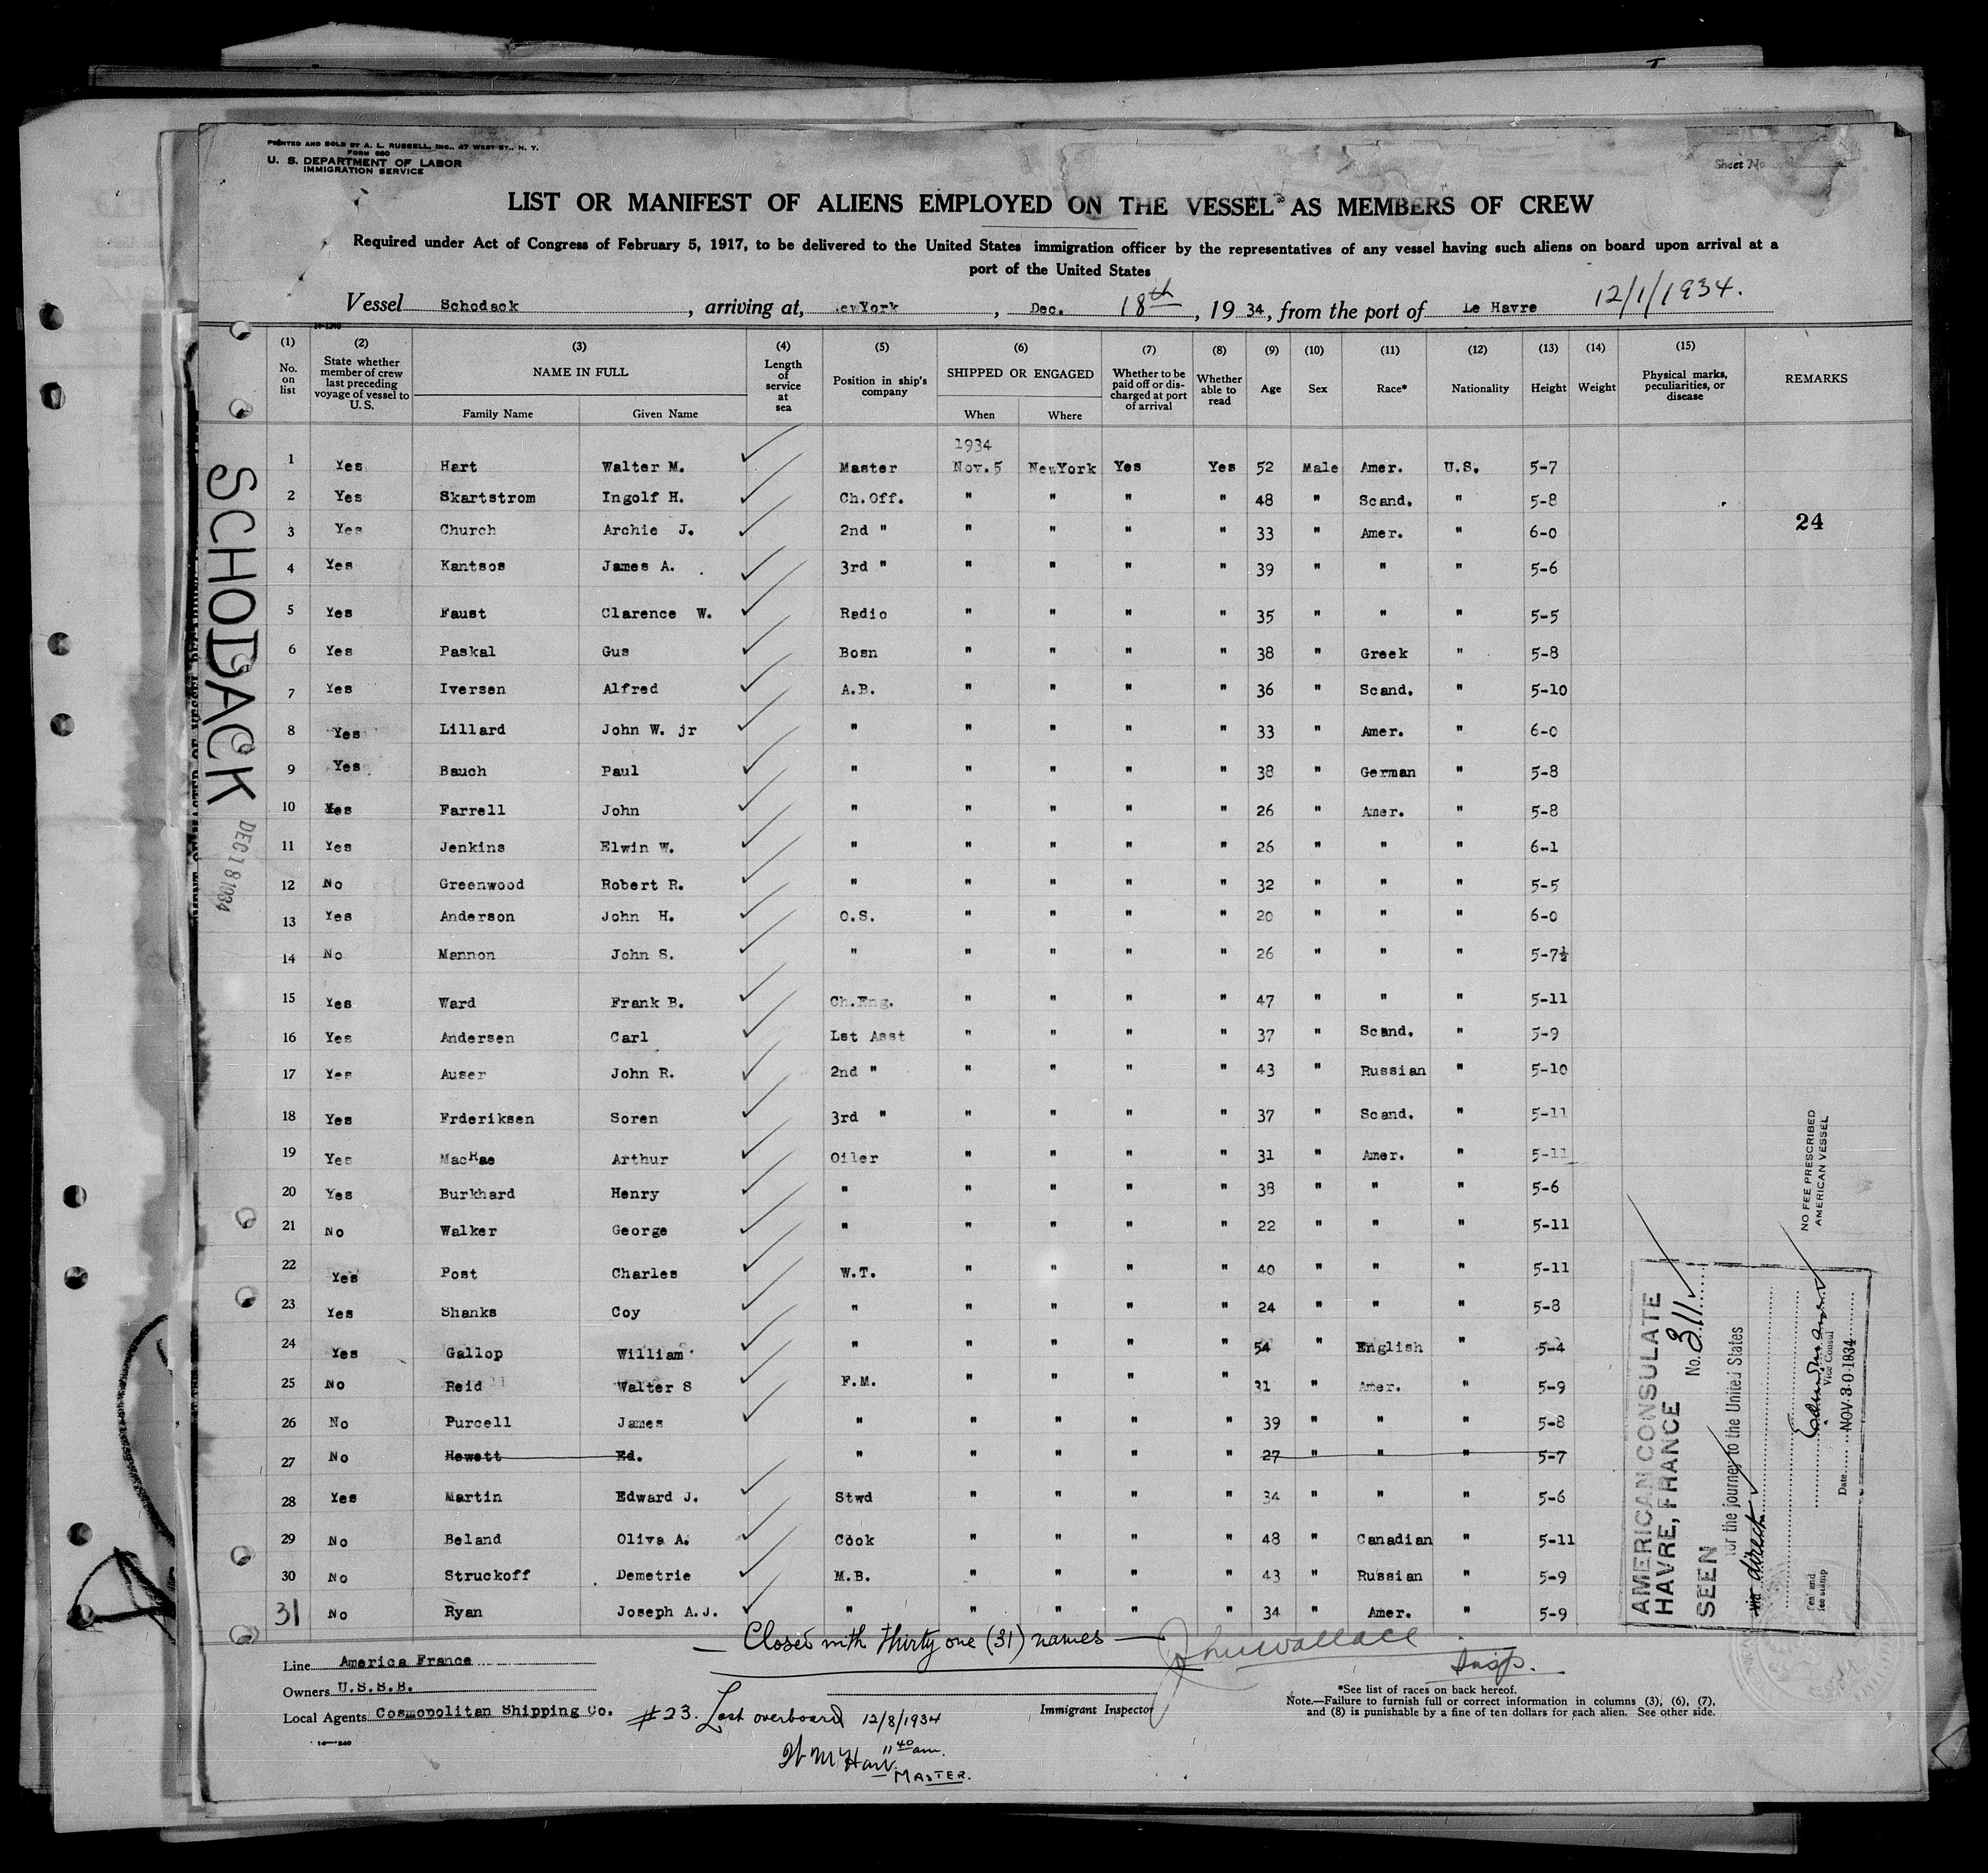 PRINTED AND SOLD BY A. L. RUSSELL, INC., 47 WEST ST., N. Y.
FORM 680
U. S. DEPARTMENT OF LABOR
IMMIGRATION SERVICE
Sheet No
LIST OR MANIFEST OF ALIENS EMPLOYED ON THE VESSEL AS MEMBERS OF CREW
Required under Act of Congress of February 5, 1917, to be delivered to the United States immigration officer by the representatives of any vessel having such aliens on board upon arrival at a
port of the United States
Vessel Schodack, arriving at, ewYork, Dec. 18th, 1934, from the port of Le Havre 12/1/1934.
(1) No. on list (2) State whether member of crew last preceding voyage of vessel to U. S. (3) NAME IN FULL Family Name Given Name (4) Length of service at sea (5) Position in ship's company (6) SHIPPED OR ENGAGED When Where (7) Whether to be paid off or discharged at port of arrival (8) Whether able to read (9) Age (10) Sex (11) Race* (12) Nationality (13) Height (14) Weight (15) Physical marks, peculiarities, or disease REMARKS
1934
1 Yes Hart Walter M. Master Nov.5 NewYork Yes Yes 52 Male Amer. U.S. 5-7
2 Yes Skartstrom Ingolf H. Ch.Off. " " " " 48 " Scand. " 5-8
3 Yes Church Archie J. 2nd " " " " " 33 " Amer. " 6-0
24
4 Yes Kantsos James A. 3rd " " " " " 39 " " " 5-6
5 Yes Faust Clarence W. Radio " " " " 35 " " " 5-5
6 Yes Paskal Gus Bosn " " " " 38 " Greek " 5-8
7 Yes Iversen Alfred A.B. " " " " 36 " Scand. " 5-10
8 Yes Lillard John W. jr " " " " " 33 " Amer. " 6-0
9 Yes Bauch Paul " " " " " 38 " German " 5-8
10 Yes Farrell John " " " " " 26 " Amer. " 5-8
11 Yes Jenkins Elwin W. " " " " " 26 " " " 6-1
12 No Greenwood Robert R. " " " " " 32 " " " 5-5
13 Yes Anderson John H. O.S. " " " " 20 " " " 6-0
14 No Mannon John S. " " " " " 26 " " " 5-7½
15 Yes Ward Frank B. Ch.Eng. " " " " 47 " " " 5-11
16 Yes Andersen Carl Lst Asst " " " " 37 " Scand. " 5-9
17 Yes Auser John R. 2nd " " " " " 43 " Russian " 5-10
18 Yes Frderiksen Soren 3rd " " " " " 37 " Scand. " 5-11
19 Yes MacRae Arthur Oiler " " " " 31 " Amer. " 5-11
20 Yes Burkhard Henry " " " " " 38 " " " 5-6
21 No Walker George " " " " " 22 " " " 5-11
22 Yes Post Charles W.T. " " " " 40 " " " 5-11
23 Yes Shanks Coy " " " " " 24 " " " 5-8
24 Yes Gallop William " " " " " 54 " English " 5-4
25 No Reid Walter S F.M. " " " " 31 " Amer. " 5-9
26 No Purcell James " " " " " 39 " " " 5-8
27 No Hewett Ed. " " " " " 27 " " " 5-7
28 Yes Martin Edward J. Stwd " " " " 34 " " " 5-6
29 No Beland Oliva A. Cook " " " " 48 " Canadian " 5-11
30 No Struckoff Demetrie M.B. " " " " 43 " Russian " 5-9
31 No Ryan Joseph A.J. " " " " " 34 " Amer. " 5-9
Closes with thirty one (31) names
Insp.
Line America France
Owners U.S.S.B.
Local Agents Cosmopolitan Shipping Co.
Immigrant Inspector
*See list of races on back hereof.
Note.—Failure to furnish full or correct information in columns (3), (6), (7),
and (8) is punishable by a fine of ten dollars for each alien. See other side.
#23. Lost overboard 12/8/1934
11 40 am.
W M Hart
MASTER.
SCHODACK
DEC 18 1934
NO FEE PRESCRIBED
AMERICAN VESSEL
AMERICAN CONSULATE
HAVRE, FRANCE No. 311
SEEN
for the journey to the United States
via direct
Vice Consul
Date NOV 30 1934
Seal and
fee stamp